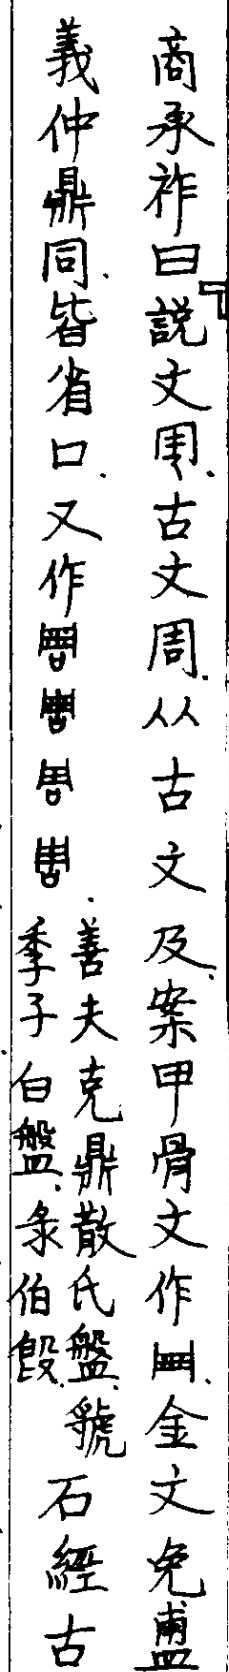 商承祚曰「説文𠱬.古文周.从古文及.案甲骨文作.金文免簠
義仲鼎同.皆省口.又作.善夫克鼎散氏盤.虢
季子白盤.彔伯𣪘.石經古